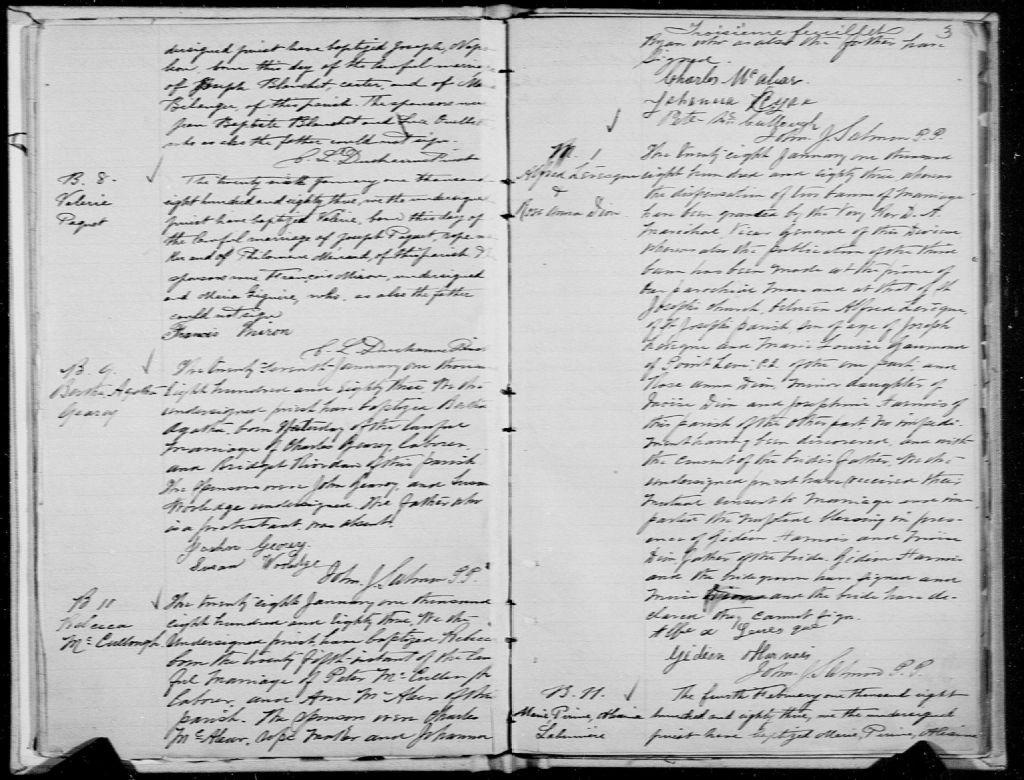 dersigned priest have baptized Joseph, Napo
leon born this day of the lawful marriage
of Joseph Blanchet, carter, and of
Belanger, of this parish. The sponsors were
Jean Baptiste Blanchet and Ouellet
who as also the father could not sign.
B. 8.
Valerie
Paquet
The twenty sixth January one thousand
eight hundred and eighty three, we the undersigned
priest have baptized Valérie, born this day of
the lawful marriage of Joseph Paquet, rope ma
ker and of Philomene of this parish The
sponsors were Francois Miron, undersigned
and who, as also the father
could not sign
Francis Miron
B. 9.
Bertha Agatha
Gearey
The twenty seventh January one thousand
eight hundred and eighty three. We the
undersigned priest have baptized Bertha
Agatha. born yesterday of the lawful
marriage of Charles Gearey laborer
and Bridget Riordan of this parish
The sponsors were John Gearey and Susan
undersigned. The father who
is a protestant, was absent.
Susan
John J. Salmon P.P.
B 11
Rebecca
Mc Cullough
The twenty eight January one thousand
eight hundred and eighty three, We the
Undersigned priest have baptized Rebecca
born the twenty fifth instant of the law
ful marriage of Peter McCullough
labour, and Ann McAlear of this
parish. The sponsors were Charles
McAlear, rope maker and Johanna
Troisième feuillet 3
Ryan who as also the father have
signed.
Charles Mc alear
Johanna Ryan
Pete Mc Cullough
John J. Salmon P.P.
M. 1
Alfred Levesque
&
Rose Anna Dion
The twenty eight January one thousand
eight hundred and eighty three whereas
the dispensation of two banns of marriage
have been granted by the Very Rev D. A.
Marechal Vicar General of this Diocese
whereas also the publication of the third
bann has been made at the prone of
our parochial mass and at that of St
Joseph church, between Alfred Levesque,
of St Joseph parish, son of age of Joseph
Levesque and Marie Louise
of Point Levi, P.Q. of the one part, and
Rose anna Dion, minor daughter of
Moïse Dion and Josephine Harnois of
this parish of the other part no impedi-
ment having been discovered, and with
the consent of the brides father, We the
undersigned priest have received their
mutual consent to marriage and im-
parted the nuptial blessing in pres-
ence of Gideon Harnois and Moïse
Dion father of the bride. Gideon Harnois
and the bridegroom have signed and
Moïse and the bride have de-
clared they cannot sign.
Gideon Harnois
John J. Salmon P.P.
B. 11.
Marie
The fourth February one thousand eight
hundred and eighty three, we the undersigned
priest have baptized Marie,